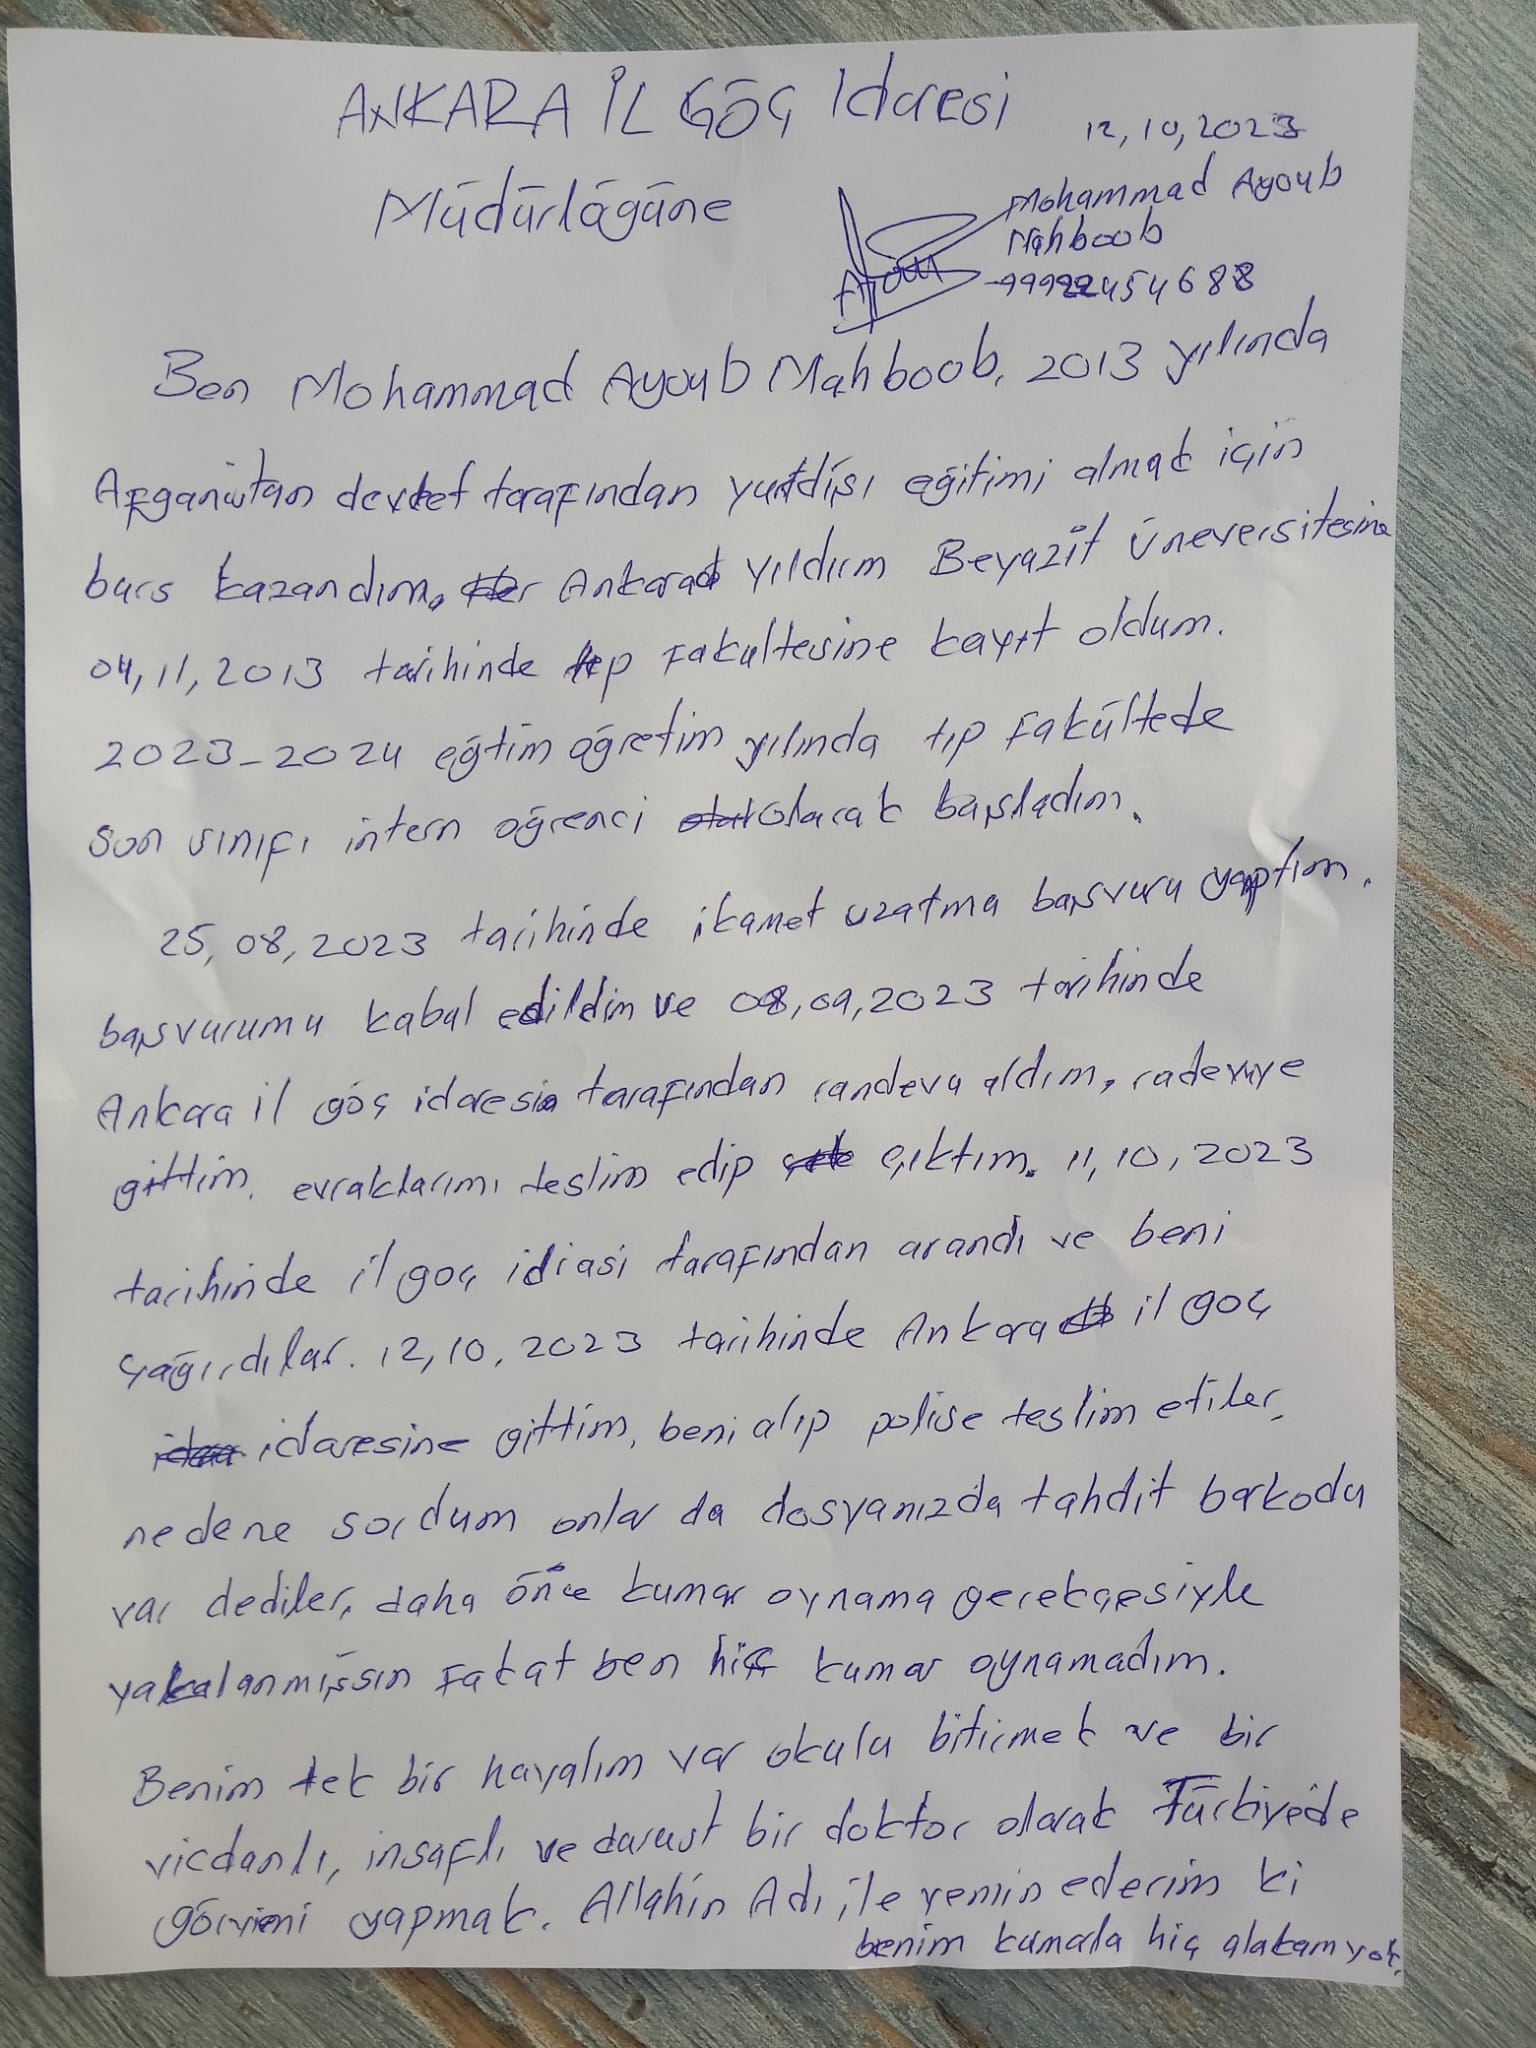 ANKARA İL GÖÇ Idaresi
12,10,2023
Müdürlöğüne
Mohammad Ayoub
Mahboob
99922454688
Ayoub
Ben Mohammad Ayoub Mahboob, 2013 yılında
Afganistan devlet tarafından yurtdışı eğitimi almak için
burs kazandım. Ankara Yıldırım Beyazit üneversitesine
04,11,2013 tarihinde tıp Fakultesine kayıt oldum.
2023-2024 eğtim öğretim yılında tıp Fakültede
son sınıfı intern öğrenci olarak başladım.
25,08,2023 tarihinde ikamet uzatma başvuru yaptım.
başvurumu kabul edildim ve 08,09,2023 tarihinde
Ankara il göç idaresi tarafından randevu aldım, radevuye
gittim. evraklarımı teslim edip çıktım. 11,10,2023
tarihinde il goç idiasi tarafından arandı ve beni
çağırdılar. 12,10,2023 tarihinde Ankara il goç
idaresine gittim, beni alıp polise teslim etiler,
nedene sordum onlar da dosyanızda tahdit barkodu
var dediler, daha önce kumar oynama gerekçesiyle
yakalanmışsın Fakat ben hiç kumar oynamadım.
Benim tek bir hayalım var okulu bitirmek ve bir
vicdanlı, insaflı ve durust bir doktor olarak Türkiyede
görvimi yapmak. Allahin Adı ile yemin ederim ki
benim kumarla hiç alakam yok.